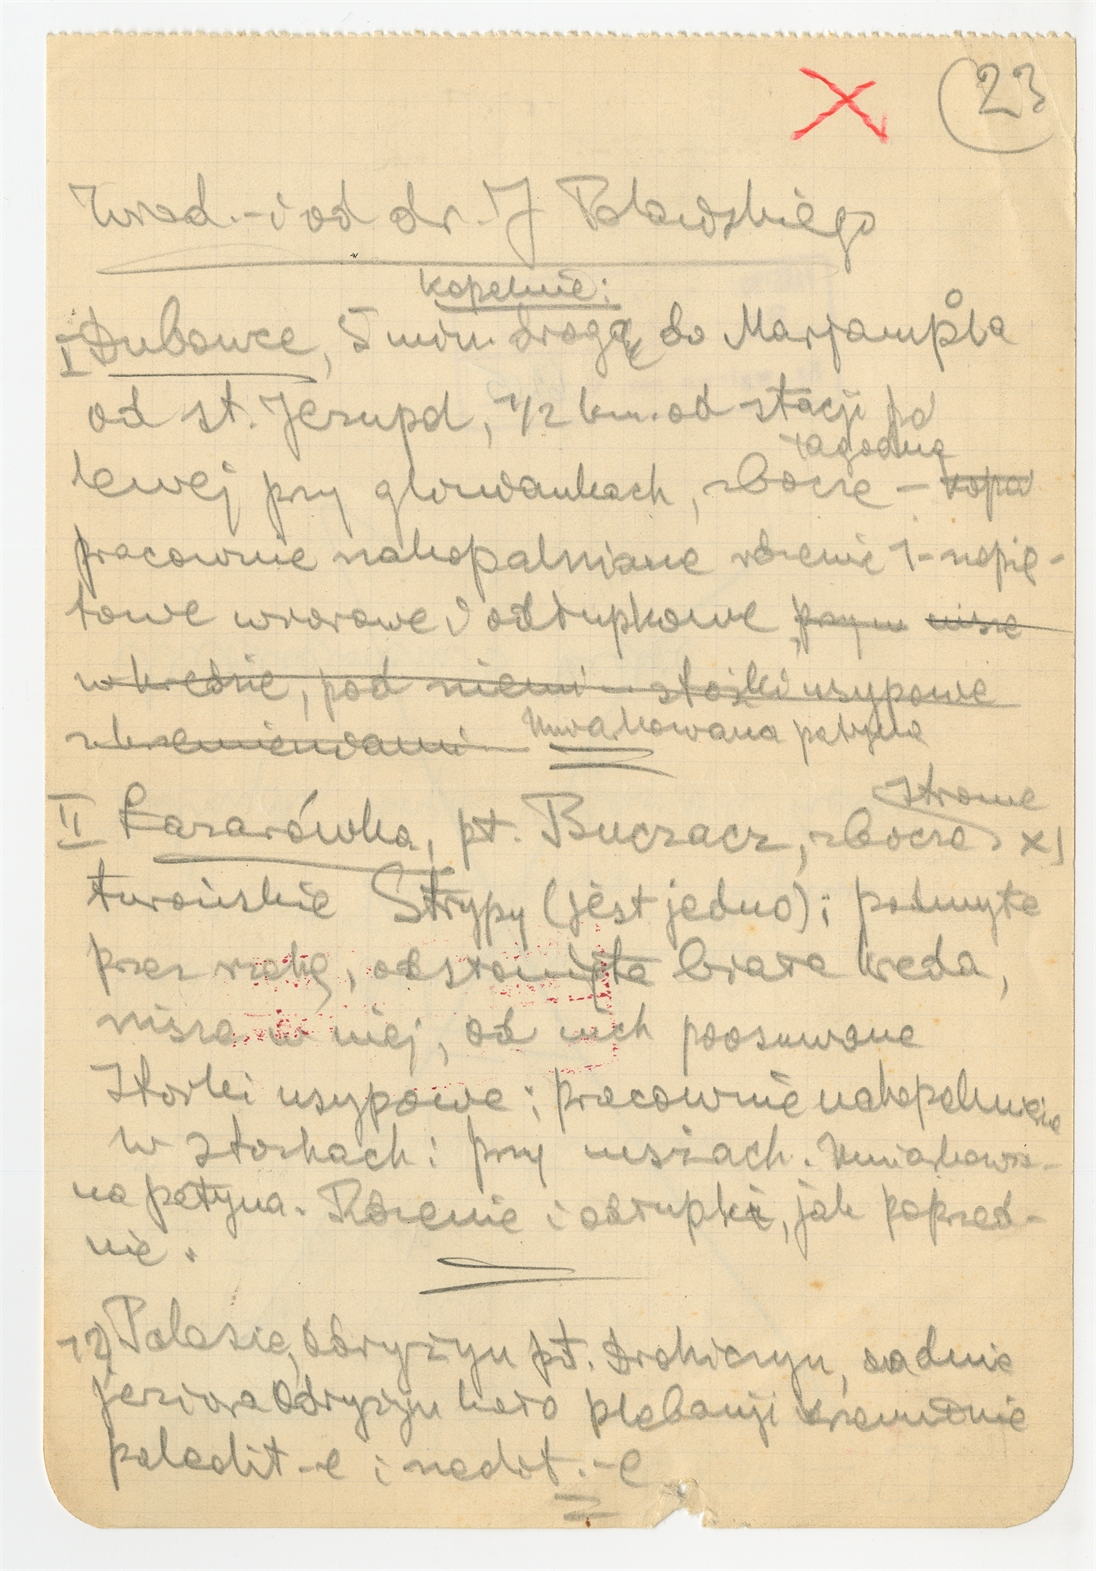 23
Wiad.-i od dr. J Polańskiego
kopalnie:
I Dubowce, 5 min. drogą do Marjampola
od st. Jezupol, 1/2 km. od stacji po
łagodne
lewej przy gliniankach, zbocze – kopa
pracownie nakopalniane rdzenie 1-nopię-
towe wiórowe i odłupkowe, przy w nisze
w kredzie, pod niemi – stożki usypowe
z krzemieniami Umiarkowana patyna
strome
II Łazarówka, pt. Buczacz, zbocze x)
turońskie Strypy (jest jedno); podmyte
przez rzekę, odsłonięta biała kreda,
nisze w niej, od nich posuwane
stożki usypowe; pracownie nakopalniane
w stożkach i przy niszach. Umiarkowa-
na patyna. Rdzenie i odłupki, jak poprzed-
nie.
12) Polesie, Odryżyn pt. Drohiczyn, na dnie
jeziora Odryżyn koło plebanji krzemienie
paleolit-e i neolit.-e